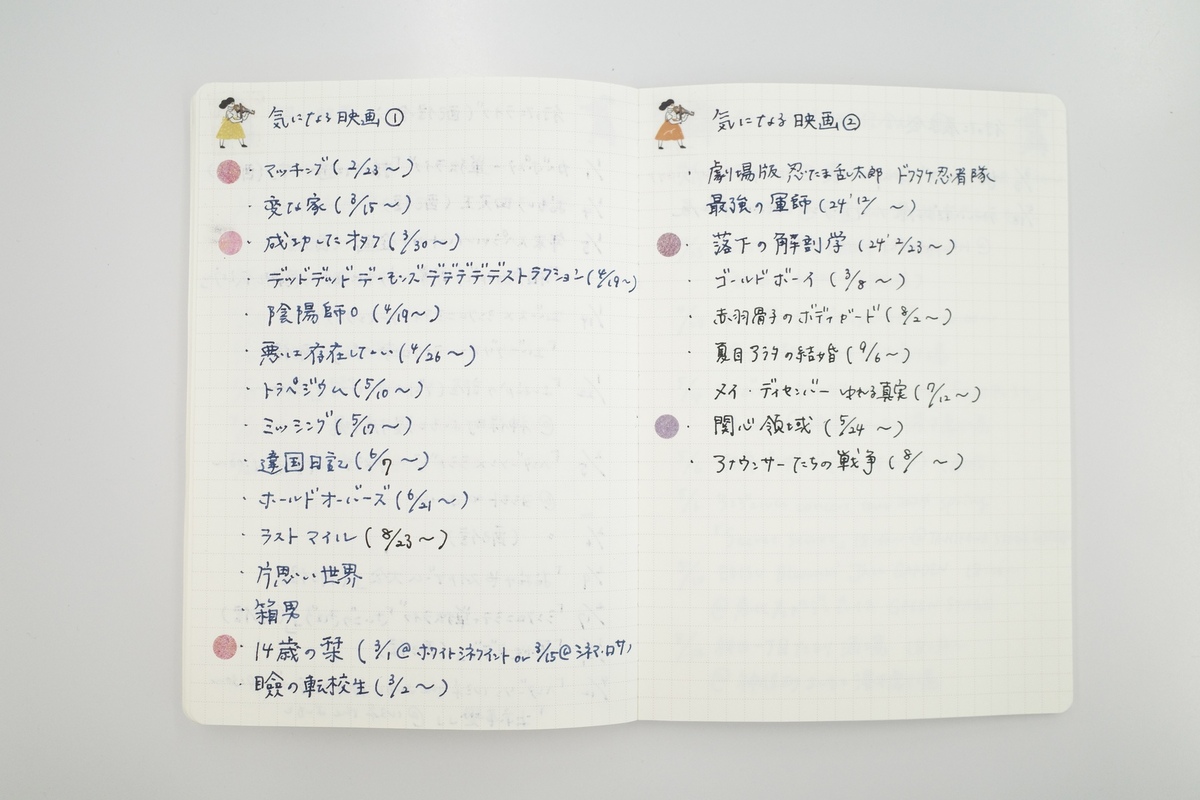 気になる映画①
・マッチング(2/23〜)
・変な家(3/15〜)
・成功したオタク(3/30〜)
デッドデッドデーモンズデデデデデストラクション(4/19〜)
・陰陽師0(4/19〜)
・悪は存在しない(4/26〜)
・トラペジウム(5/10〜)
・ミッシング(5/17〜)
・違国日記(6/7〜)
・ホールドオーバーズ(6/21〜)
・ラストマイル(8/23〜)
・片思い世界
・箱男
・14歳の栞(3/1@ホワイトシネクイント or 3/15@シネマ・ロサ)
・瞼の転校生(3/2〜)
気になる映画②
・劇場版 忍たま乱太郎 ドクタケ忍者隊
最強の軍師(24'12/ 〜)
・落下の解剖学(24'2/23〜)
・ゴールドボーイ(3/8〜)
・赤羽骨子のボディガード(8/2〜)
・夏目アラタの結婚(9/6〜)
・メイ・ディセンバー ゆれる真実(7/12〜)
・関心領域(5/24〜)
・アナウンサーたちの戦争(8/ 〜)